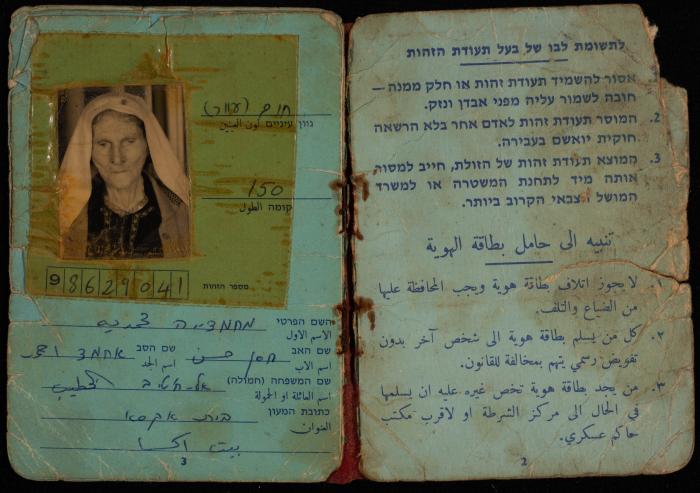 לתשומת לבו של בעל תעודת הזהות
אסור להשמיד תעודת זהות או חלק ממנה —
חובה לשמור עליה מפני אבדן ונזק.
2. המוסר תעודת זהות לאדם אחר בלא הרשאה
חוקית יואשם בעבירה.
3. המוצא תעודת זהות של הזולת, חייב למסור
אותה מיד לתחנת המשטרה או למשרד
המושל הצבאי הקרוב ביותר.
تنبيه الى حامل بطاقة الهوية
١. لا يجوز اتلاف بطاقة هوية ويجب المحافظة عليها
من الضياع والتلف.
٢. كل من يسلم بطاقة هوية الى شخص آخر بدون
تفويض رسمي يتهم بمخالفة للقانون.
٣. من يجد بطاقة هوية تخص غيره عليه ان يسلمها
في الحال الى مركز الشرطة او لاقرب مكتب
حاكم عسكري.
2
חום (עוור)
גוון עיניים لون العينين
150
קומה الطول
מספר הזהות 98629041
השם הפרטי
الاسم الاول
שם האב חסן حسن שם הסב אחמד احمد
اسم الاب اسم الجد
שם המשפחה (חמולה) אל-חטיב الخطيب
اسم العائلة او الحمولة
כתובת המעון בית אקסא
العنوان بيت اكسا
3